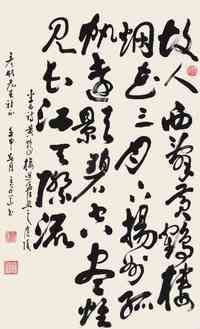 故人西辭黃鶴樓
烟花三月下揚州孤
帆遠影碧空盡惟
見長江天際流
李白詩黃鶴樓送孟浩然之廣陵
先生 壬申